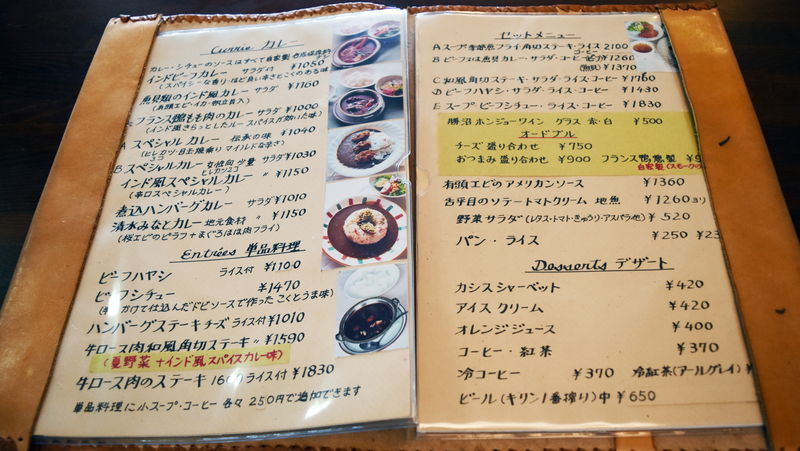 Currie カレー
カレー・シチューのソースはすべて自家製
インドビーフカレー サラダ付 ¥1050
(スパイシーな香り・ほど良い辛さとこくのある味)
魚貝類のインド風カレー サラダ ¥1160
(有頭エビ・イカ・帆立貝入)
フランス鴨もも肉のカレー サラダ ¥1000
(インド風さらっとしたルースパイスが効いた味)
Aスペシャルカレー 伝承の味 ¥1040
(ヒレカツ・目玉焼乗り マイルドな辛さ)
Bスペシャルカレー 女性向 少量 サラダ ¥1030
ヒレカツ2コ
インド風スペシャルカレー 〃 ¥1150
(辛口スペシャルカレー)
煮込ハンバーグカレー サラダ付 ¥1010
清水みなとカレー 地元食材 〃 ¥1150
(桜エビのピラフ+まぐろほほ肉フライ)
Entrées 単品料理
ビーフハヤシ ライス付 ¥1100
ビーフシチュー ¥1470
かけて仕込んだドビソースで作ったこくとうま味)
ハンバーグステーキ チーズ ライス付 ¥1010
牛ロース肉和風角切ステーキ 〃 ¥1590
(夏野菜+インド風スパイスカレー味)
牛ロース肉のステーキ 160g ライス付 ¥1830
単品料理に小スープ・コーヒー各々250円で追加できます
セットメニュー
Aスープ・フライ角切ステーキ・ライス 2100
コーヒー
B ビーフ又は魚貝カレー・サラダ・コーヒー ¥1260
(魚貝) ¥1370
C 和風角切ステーキ・サラダ・ライス・コーヒー ¥1760
D ビーフハヤシ・サラダ・ライス・コーヒー ¥1430
E スープ ビーフシチュー・ライス・コーヒー ¥1830
勝沼 ホンジョーワイン グラス 赤・白 ¥500
オードブル
チーズ盛り合わせ ¥750
おつまみ盛り合わせ ¥900 フランス鴨燻製
自家製(スモーク
有頭エビのアメリカンソース ¥1360
舌平目のソテートマトクリーム 地魚 ¥1260より
野菜サラダ(レタス・トマト・きゅうり・アスパラ他) ¥520
パン・ライス ¥250
Desserts デザート
カシスシャーベット ¥420
アイスクリーム ¥420
オレンジジュース ¥400
コーヒー・紅茶 ¥370
冷コーヒー ¥370 冷紅茶(アールグレイ)
ビール(キリン一番搾り)中 ¥650